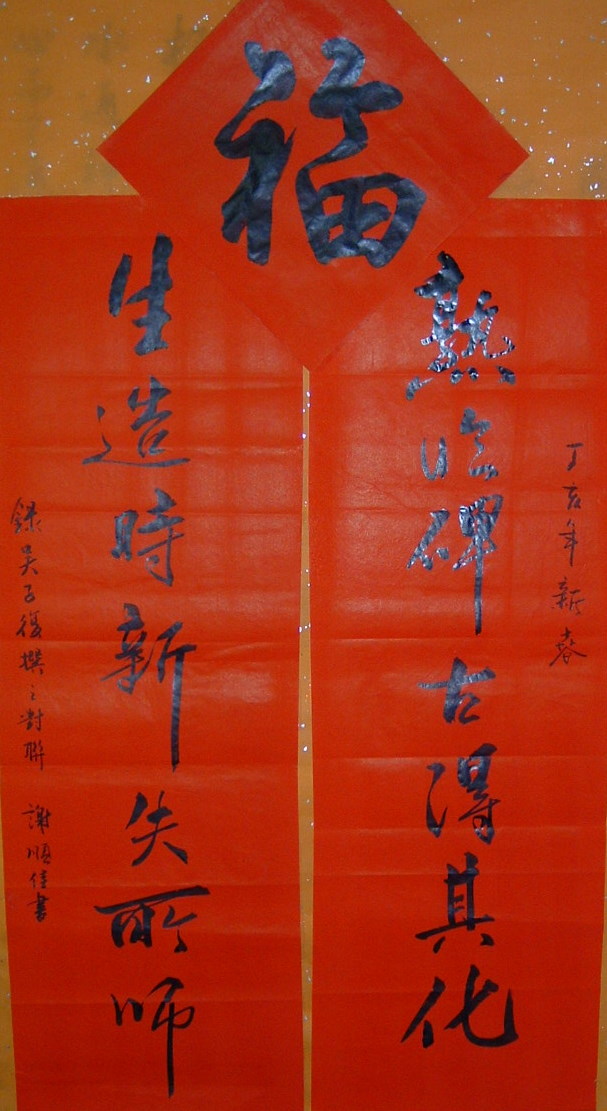 福
丁亥年新春
熟临碑古得其化
生造時新失所師
錄吳子復撰之對聯 謝順佳書